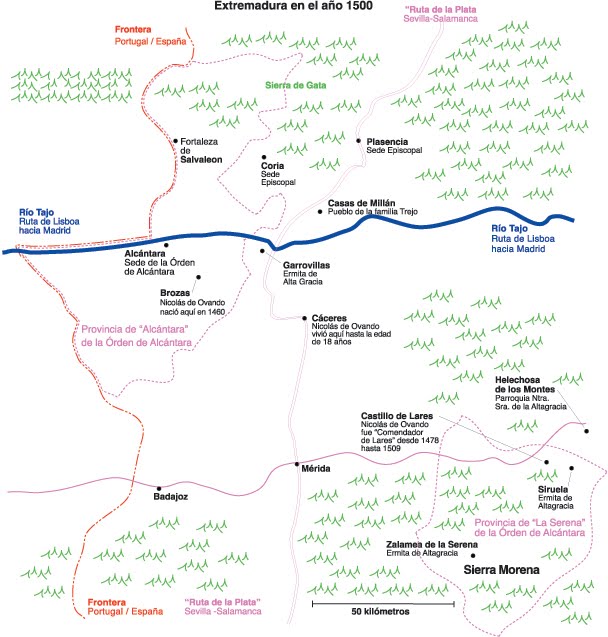 Extremadura en el año 1500
"Ruta de la Plata
Sevilla-Salamanca
Frontera
Portugal / España
Sierra de Gata
Fortaleza
de
Salvaleon
Coria
Sede
Episcopal
Plasencia
Sede Episcopal
Casas de Millán
Pueblo de la familia Trejo
Río Tajo
Ruta de Lisboa
hacia Madrid
Río Tajo
Ruta de Lisboa
hacia Madrid
Alcántara
Sede de la Órden
de Alcántara
Garrovillas
Ermita de
Alta Gracia
Brozas
Nicolás de Ovando
nació aquí en 1460
Provincia de "Alcántara"
de la Órden de Alcántara
Cáceres
Nicolás de Ovando
vivió aquí hasta la edad
de 18 años
Helechosa
de los Montes
Parroquia Ntra.
Sra. de la Altagracia
Castillo de Lares
Nicolás de Ovando
fue "Comendador
de Lares" desde 1478
hasta 1509
Mérida
Badajoz
Siruela
Ermita de
Altagracia
Provincia de "La Serena"
de la Órden de Alcántara
Zalamea de la Serena
Ermita de Altagracia
Sierra Morena
Frontera
Portugal / España
"Ruta de la Plata"
Sevilla -Salamanca
50 kilómetros